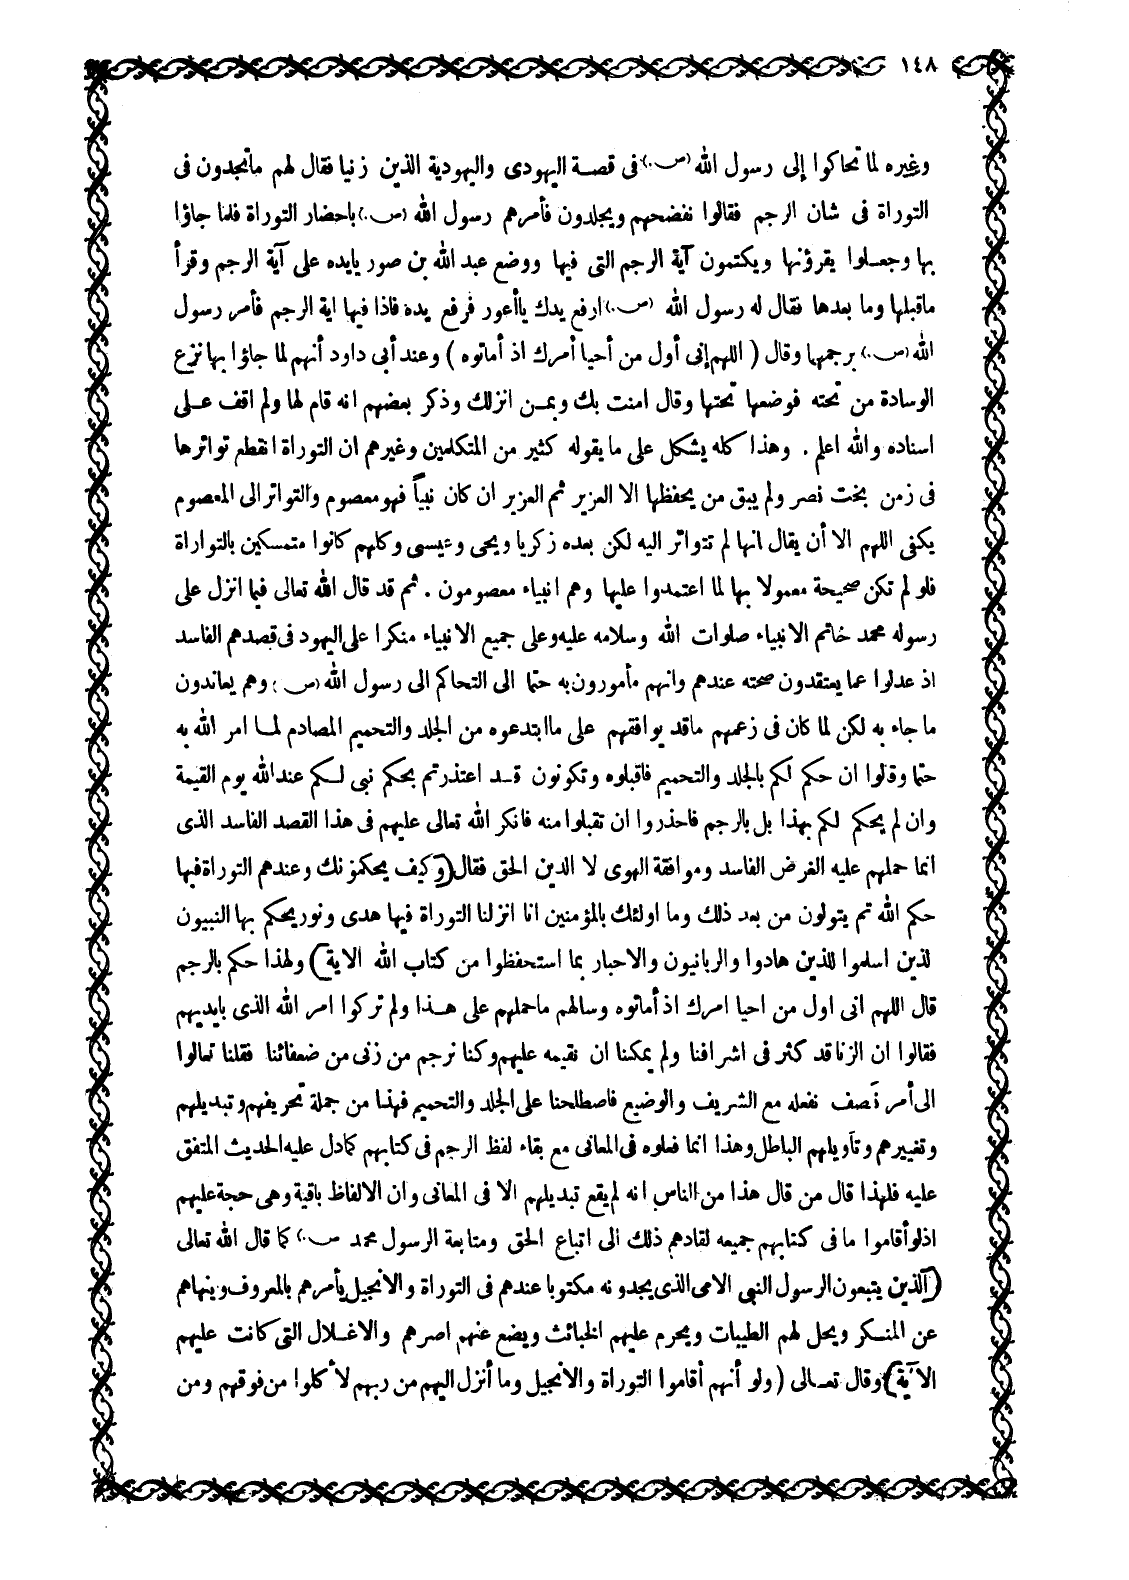 ١٤٨
وغيره لما تحاكوا إلى رسول الله (ص) فى قصة اليهودى واليهودية الذين زنيا فقال لهم ماتجدون فى
التوراة فى شان الرجم فقالوا نفضحهم ويجلدون فأمرهم رسول الله (ص) باحضار التوراة فلما جاؤا
بها وجعلوا يقرؤنها ويكتمون آية الرجم التى فيها ووضع عبد الله بن صور يايده على آية الرجم وقرأ
ماقبلها وما بعدها فقال له رسول الله (ص) ارفع يدك ياأعور فرفع يده فاذا فيها اية الرجم فأمر رسول
الله (ص) برجمها وقال ( اللهم إنى أول من أحيا أمرك اذ أماتوه ) وعند أبى داود أنهم لما جاؤا بها نزع
الوسادة من تحته فوضعها تحتها وقال امنت بك وبمن انزلك وذكر بعضهم انه قام لها ولم اقف على
اسناده والله اعلم . وهذا كله يشكل على ما يقوله كثير من المتكلمين وغيرهم ان التوراة انقطع تواترها
فى زمن بخت نصر ولم يبق من يحفظها الا العزير ثم العزير ان كان نبياً فهو معصوم والتواتر الى المعصوم
يكفى اللهم الا أن يقال انها لم تتواتر اليه لكن بعده زكريا ويحى وعيسى وكلهم كانوا متمسكين بالتواراة
فلو لم تكن صحيحة معمولا بها لما اعتمدوا عليها وهم انبياء معصومون . ثم قد قال الله تعالى فيما انزل على
رسوله محمد خاتم الانبياء صلوات الله وسلامه عليه وعلى جميع الانبياء منكرا على اليهود فى قصدهم الفاسد
اذ عدلوا عما يعتقدون صحته عندهم وانهم مأمورون به حتما الى التحاكم الى رسول الله (ص) وهم يعاندون
ما جاء به لكن لما كان فى زعمهم ماقد يوافقهم على ماابتدعوه من الجلد والتحميم المصادم لما امر الله به
حتما وقالوا ان حكم لكم بالجلد والتحميم فاقبلوه وتكونون قد اعتذرتم بحكم نبى لكم عند الله يوم القيمة
وان لم يحكم لكم بهذا بل بالرجم فاحذروا ان تقبلوا منه فانكر الله تعالى عليهم فى هذا القصد الفاسد الذى
انما حملهم عليه الغرض الفاسد وموافقة الهوى لا الدين الحق فقال (وكيف يحكمونك وعندهم التوراة فيها
حكم الله ثم يتولون من بعد ذلك وما اولئك بالمؤمنين انا انزلنا التوراة فيها هدى ونور يحكم بها النبيون
لذين اسلموا للذين هادوا والربانيون والاحبار بما استحفظوا من كتاب الله الاية) ولهذا حكم بالرجم
قال اللهم انى اول من احيا امرك اذ أماتوه وسالهم ماحملهم على هذا ولم تركوا امر الله الذى بايديهم
فقالوا ان الزنا قد كثر فى اشرافنا ولم يمكنا ان نقيمه عليهم وكنا نرجم من زنى من ضعفائنا فقلنا تعالوا
الى أمر نصف نفعله مع الشريف والوضيع فاصطلحنا على الجلد والتحميم فهذا من جملة تحريفهم وتبديلهم
وتغييرهم وتأويلهم الباطل وهذا انما فعلوه فى المعانى مع بقاء لفظ الرجم فى كتابهم كما دل عليه الحديث المتفق
عليه فلهذا قال من قال هذا من الناس انه لم يقع تبديلهم الا فى المعانى وان الالفاظ باقية وهى حجة عليهم
اذلو أقاموا ما فى كتابهم جميعه لقادهم ذلك الى اتباع الحق ومتابعة الرسول محمد ص كما قال الله تعالى
(الذين يتبعون الرسول النبي الامى الذى يجدونه مكتوبا عندهم فى التوراة والانجيل يأمرهم بالمعروف وينهاهم
عن المنكر ويحل لهم الطيبات ويحرم عليهم الخبائث ويضع عنهم اصرهم والاغلال التى كانت عليهم
الاية) وقال تعالى ( ولو أنهم أقاموا التوراة والانجيل وما أنزل اليهم من ربهم لأكلوا من فوقهم ومن